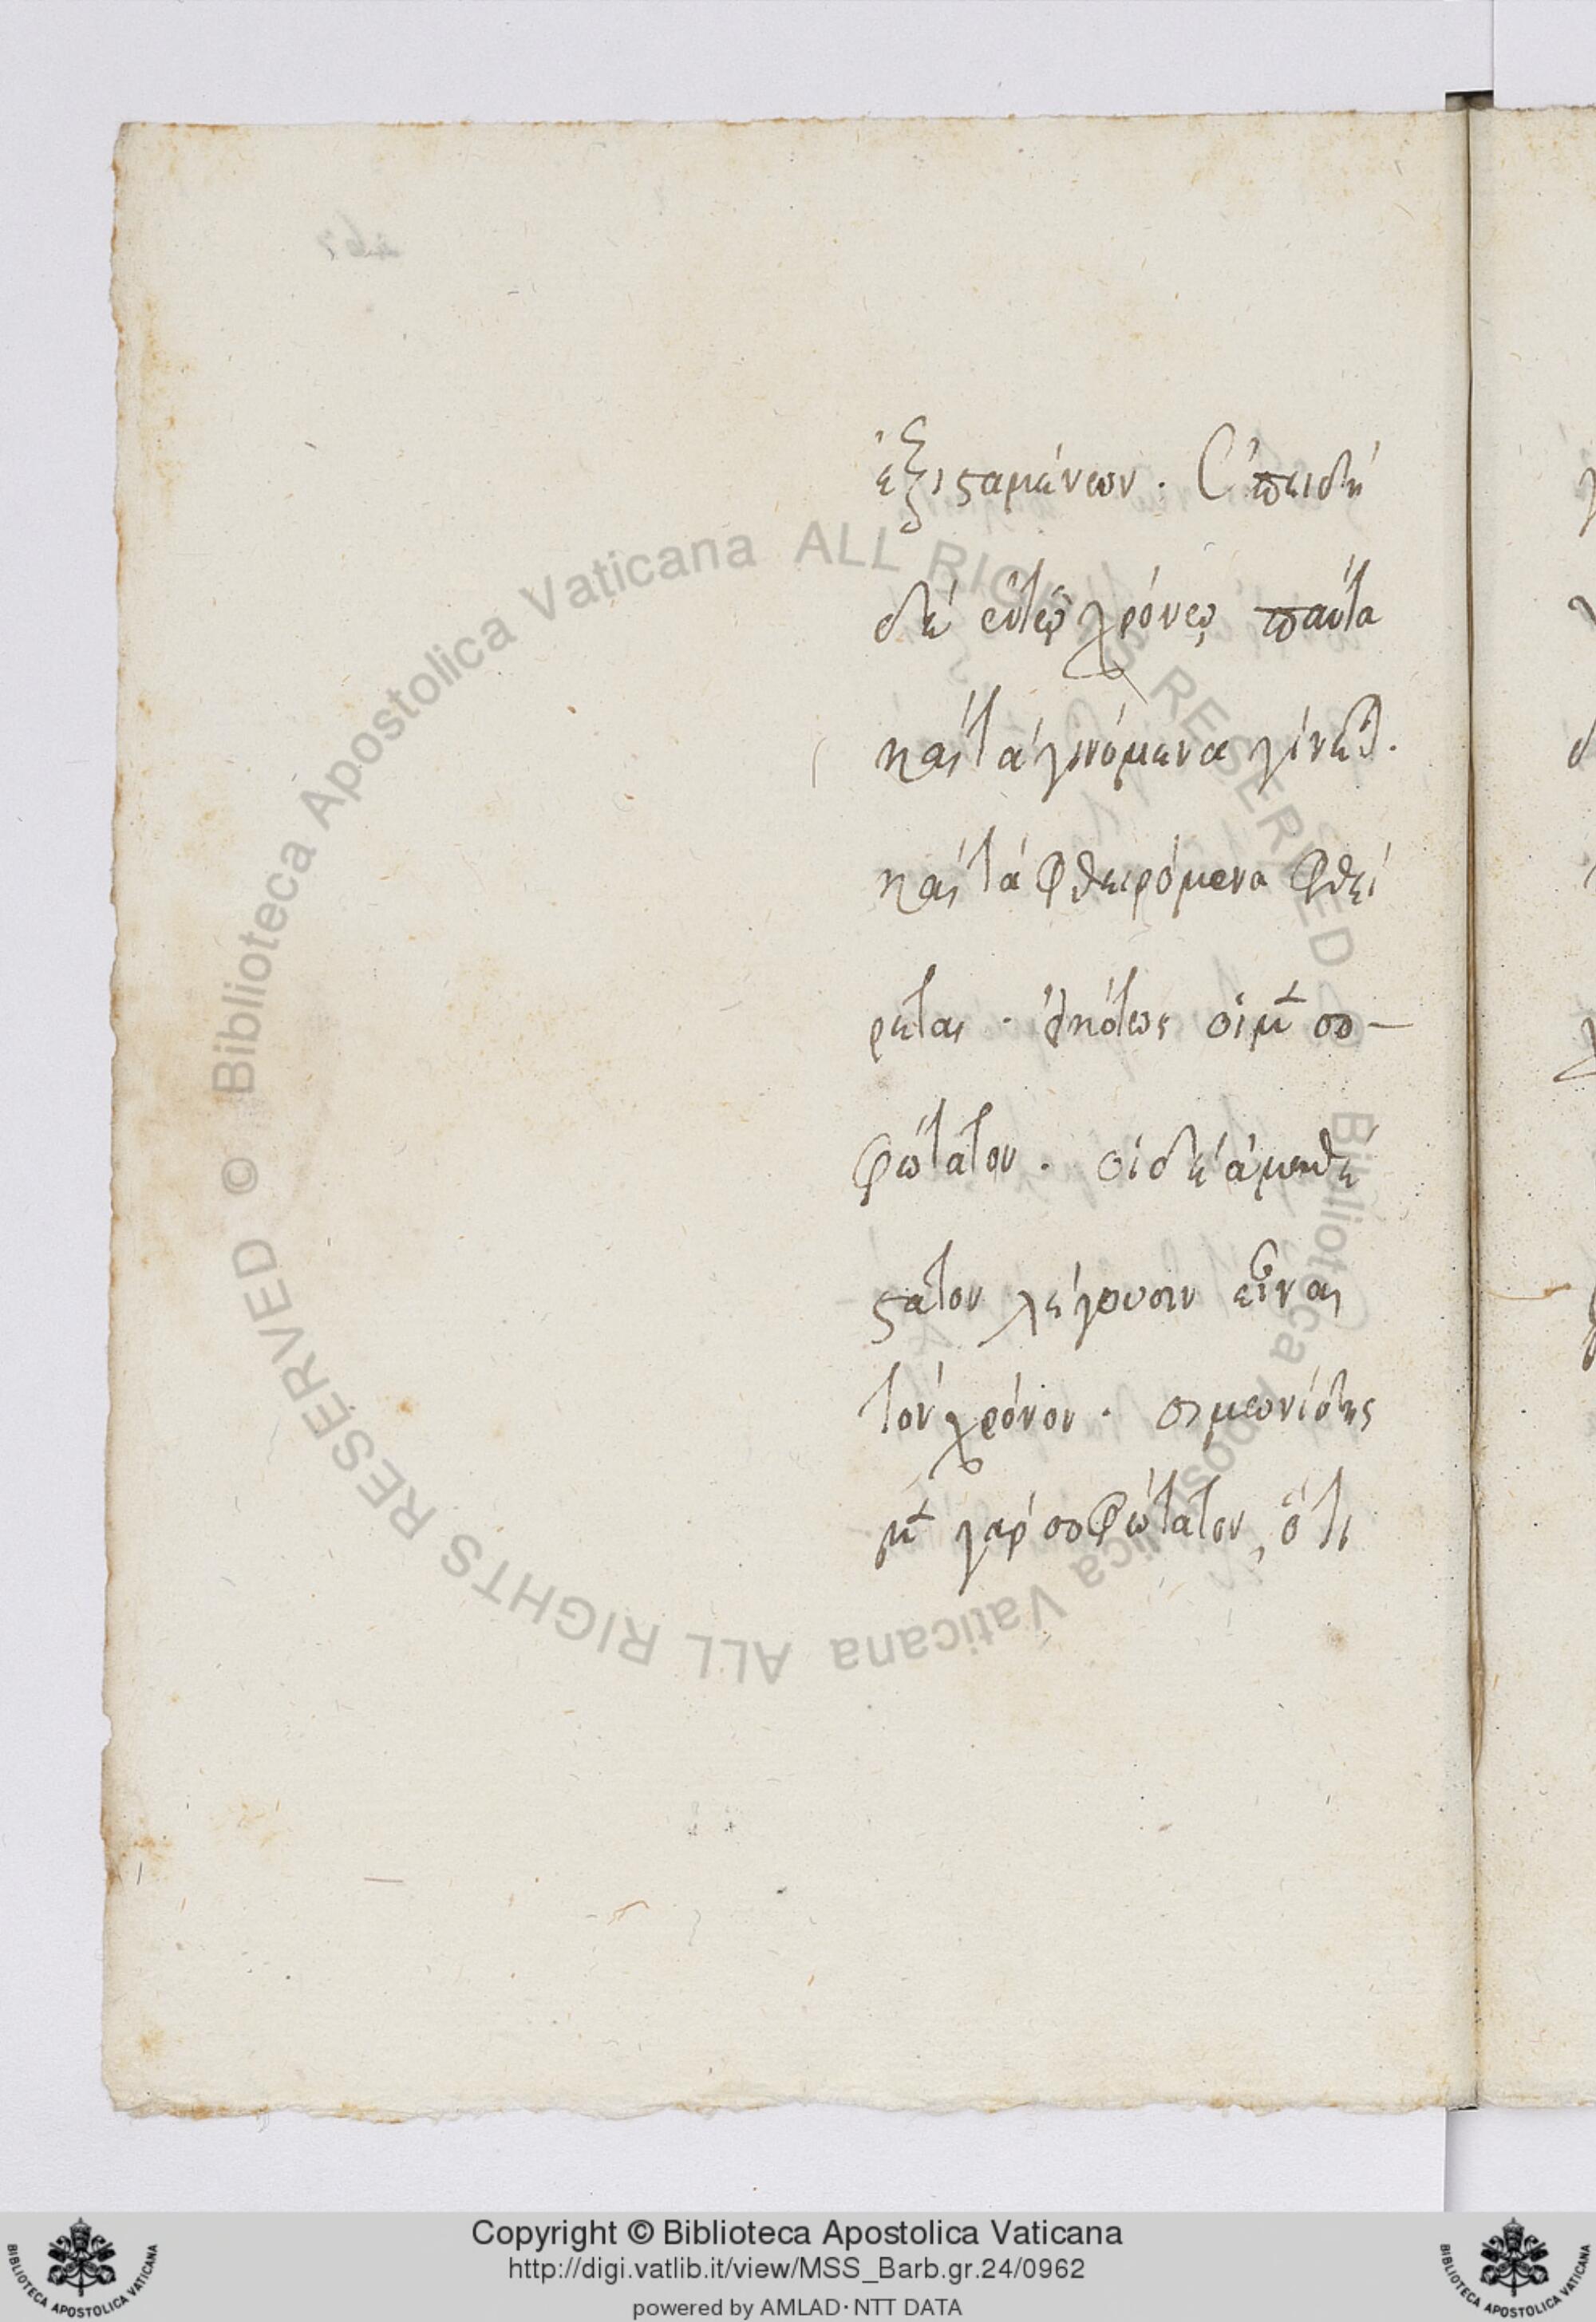 ἐξισταμένων. Ἐπειδὴ
δὲ ἐν τῷ χρόνῳ πάντα
καὶ τὰ γινόμενα γίνεται.
καὶ τὰ φθειρόμενα φθεί
ρεται. εἰκότως οἱ μὲν σο-
φώτατον. οἱ δὲ ἀμαθέ
στατον λέγουσιν εἶναι
τὸν χρόνον. σιμωνίδης
μὲν γὰρ σοφώτατον, ὅτι
Biblioteca Apostolica Vaticana ALL RIGHTS RESERVED ©
Biblioteca Apostolica Vaticana ALL RIGHTS RESERVED ©
Copyright © Biblioteca Apostolica Vaticana
http://digi.vatlib.it/view/MSS_Barb.gr.24/0962
powered by AMLAD·NTT DATA
BIBLIOTECA APOSTOLICA VATICANA
BIBLIOTECA APOSTOLICA VATICANA